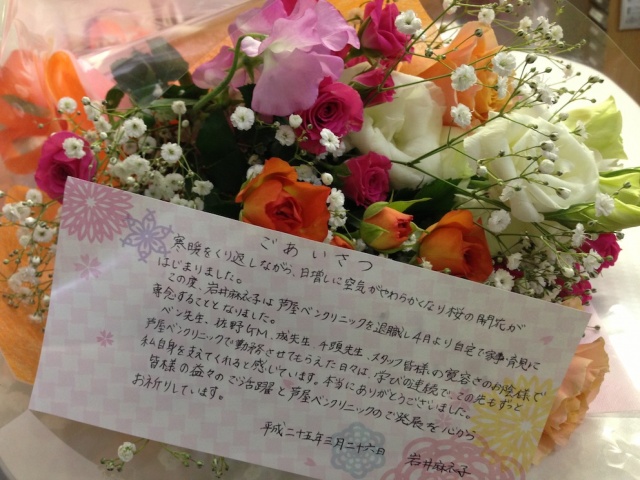 ごあいさつ
寒暖をくり返しながら、日増しに空気がやわらかくなり桜の開花が
はじまりました。
この度、岩井麻衣子は芦屋ベンクリニックを退職し4月より自宅で家事・育児に
専念することとなりました。
ベン先生、佐野GM、成先生、千頭先生、スタッフ皆様の寛容さのお陰様で
芦屋ベンクリニックで勤務させてもらえた日々は、学びの連続で、この先もずっと
私自身を支えてくれると感じています。本当にありがとうございました。
皆様の益々のご活躍と芦屋ベンクリニックのご発展を心から
お祈りしています。
平成二十五年三月二十六日
岩井麻衣子